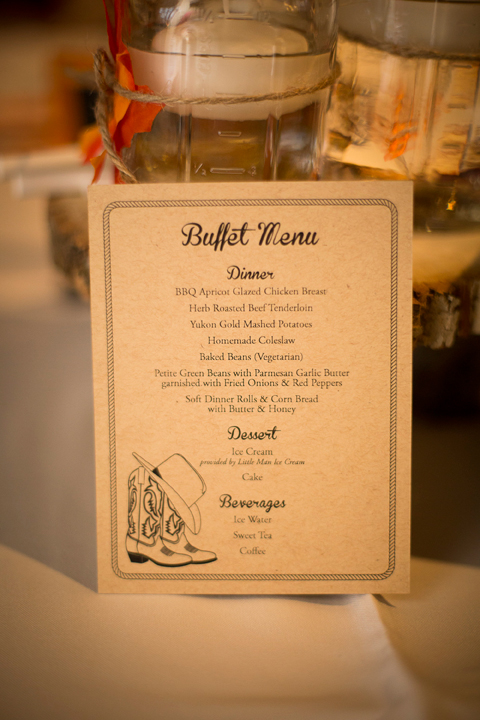 Buffet Menu
Dinner
BBQ Apricot Glazed Chicken Breast
Herb Roasted Beef Tenderloin
Yukon Gold Mashed Potatoes
Homemade Coleslaw
Baked Beans (Vegetarian)
Petite Green Beans with Parmesan Garlic Butter
garnished with Fried Onions & Red Peppers
Soft Dinner Rolls & Corn Bread
with Butter & Honey
Dessert
Ice Cream
provided by Little Man Ice Cream
Cake
Beverages
Ice Water
Sweet Tea
Coffee